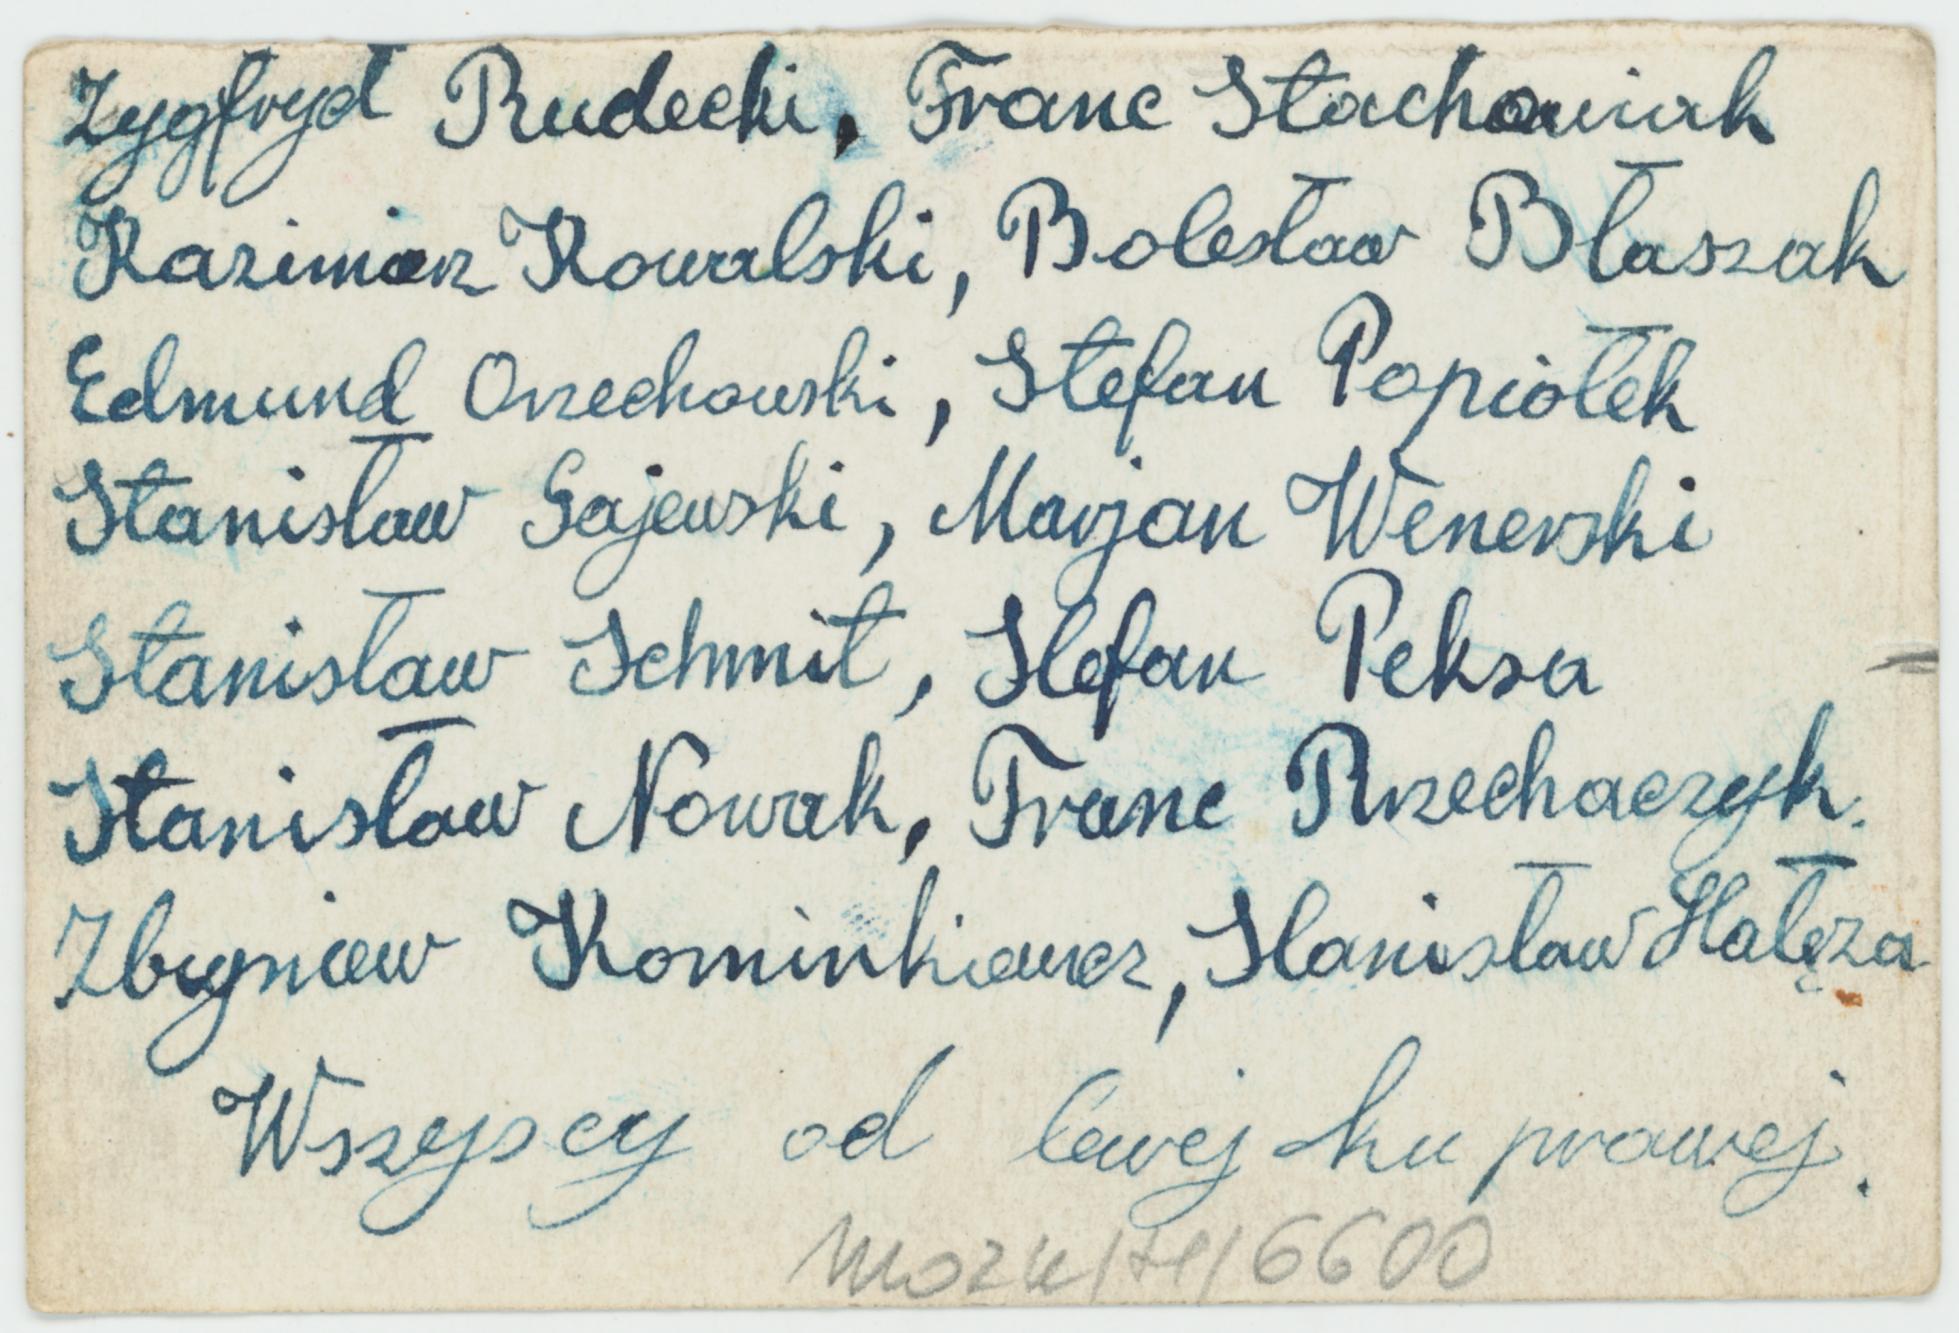 Zygfryd Rudecki, Franc Stachowiak
Kazimierz Kowalski, Bolesław Błaszak
Edmund Orzechowski, Stefan Popiołek
Stanisław Gajewski, Marjan Wenerski
Stanisław Schmit, Stefan Peksa
Stanisław Nowak, Franc Rzechaczyk.
Zbigniew Kominkiewicz, Stanisław Hałęza
Wszyscy od lewej ku prawej.
6600